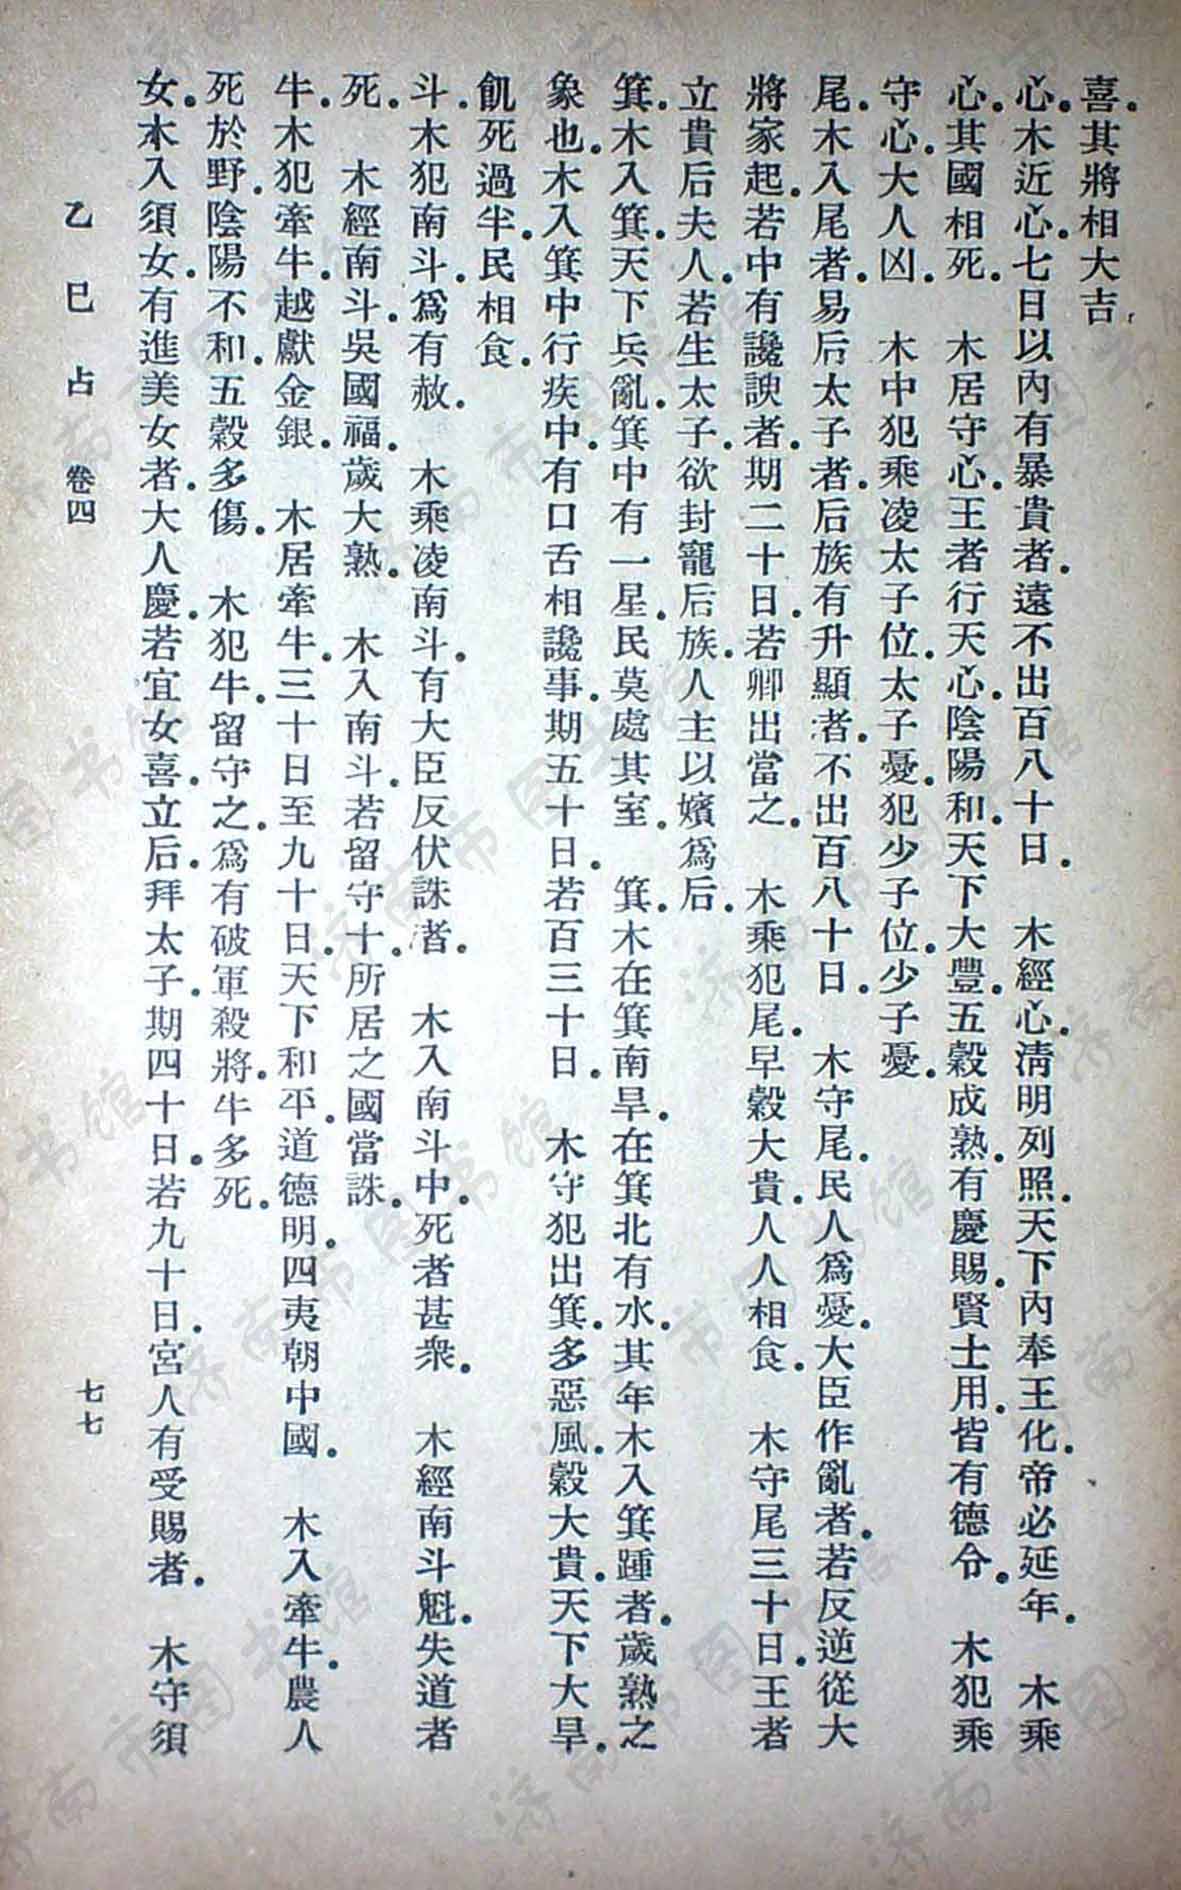 喜。其將相大吉
心。木近心。七日以內有暴貴者。遠不出百八十日。　木經心。清明列照。天下內奉王化。帝必延年。　木乘
心。其國相死。　木居守心。王者行天心。陰陽和。天下大豐。五穀成熟。有慶賜。賢士用。皆有德令。　木犯乘
守心。大人凶。　木中犯乘凌太子位。太子憂。犯少子位。少子憂。
尾。木入尾者。易后太子者。后族有升顯者。不出百八十日。　木守尾。民人爲憂。大臣作亂者。若反逆從大
將家起。若中有讒諛者。期二十日。若卿出當之。　木乘犯尾。早穀大貴。人人相食。　木守尾三十日。王者
立貴后夫人。若生太子。欲封寵后族。人主以嬪爲后。
箕。木入箕。天下兵亂。箕中有一星。民莫處其室。　箕。木在箕南旱。在箕北有水。其年木入箕踵者。歲熟之
象也。木入箕中行疾中。有口舌相讒事。期五十日。若百三十日。　木守犯出箕。多惡風。穀大貴。天下大旱。
飢死過半。民相食。
斗。木犯南斗。爲有赦。　木乘凌南斗。有大臣反伏誅者。　木入南斗中。死者甚衆。　木經南斗魁。失道者
死。　木經南斗。吳國福。歲大熟。　木入南斗。若留守十。所居之國當誅。
牛。木犯牽牛。越獻金銀。　木居牽牛。三十日至九十日。天下和平。道德明。四夷朝中國。　木入牽牛。農人
死於野。陰陽不和。五穀多傷。　木犯牛。留守之。爲有破軍殺將。牛多死。
女。木入須女。有進美女者。大人慶。若宜女喜。立后。拜太子。期四十日。若九十日。宮人有受賜者。　木守須
乙巳占　卷四　七七
济南市图书馆